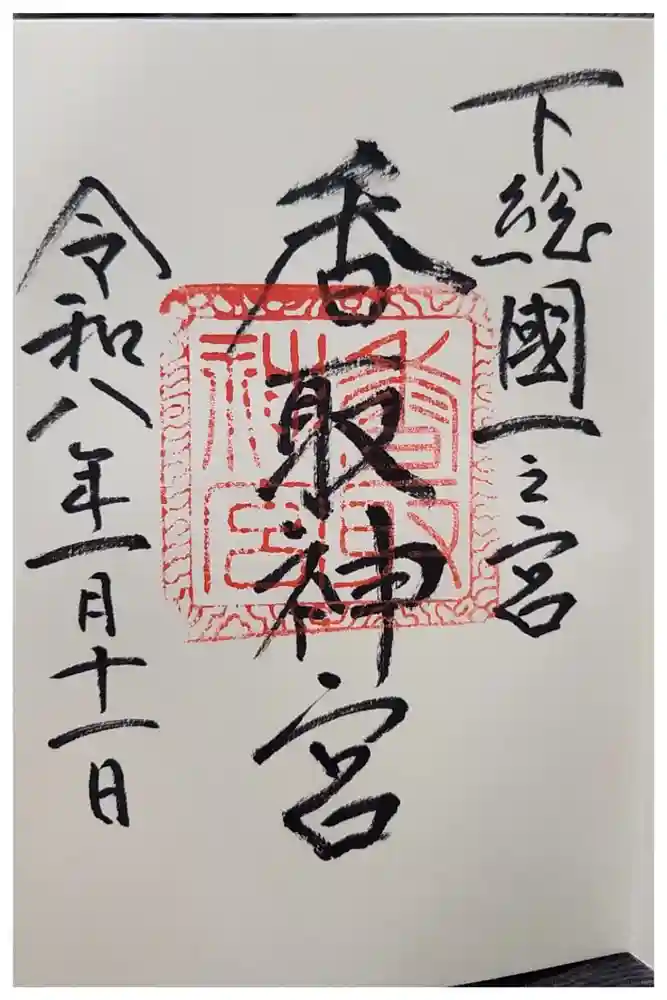 下総國一之宮
香取神宮
香取神宮
令和八年一月十一日